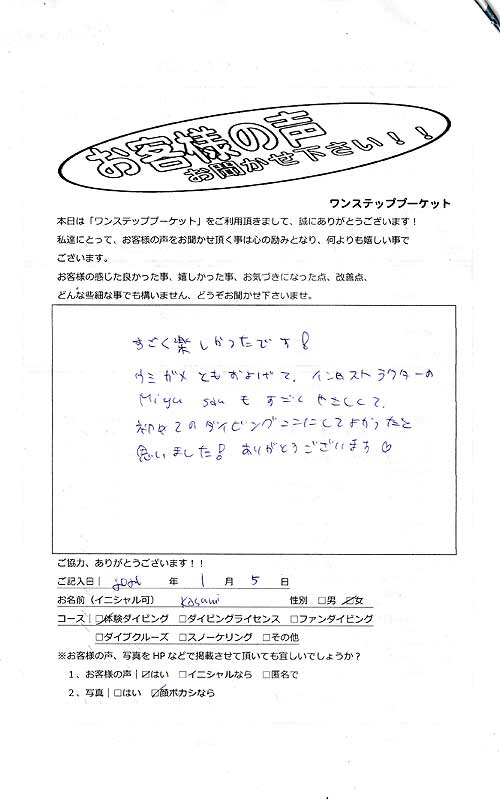 お客様の声
お聞かせ下さい！！
ワンステッププーケット
本日は「ワンステッププーケット」をご利用頂きまして、誠にありがとうございます！
私達にとって、お客様の声をお聞かせ頂く事は心の励みとなり、何よりも嬉しい事で
ございます。
お客様の感じた良かった事、嬉しかった事、お気づきになった点、改善点、
どんな些細な事でも構いません、どうぞお聞かせ下さいませ。
すごく楽しかったです！
ウミガメともおよげて、インストラクターの
Miyu sanもすごくやさしくて、
初めてのダイビングここにしてよかったと
思いました！ ありがとうございます♡
ご協力、ありがとうございます！！
ご記入日｜ 年 1 月 5 日
お名前（イニシャル可） Kasumi 性別 □男 ☑女
コース｜☑体験ダイビング □ダイビングライセンス □ファンダイビング
□ダイブクルーズ □スノーケリング □その他
※お客様の声、写真をHPなどで掲載させて頂いても宜しいでしょうか？
1、お客様の声｜☑はい □イニシャルなら □匿名で
2、写真｜□はい ☑顔ボカシなら